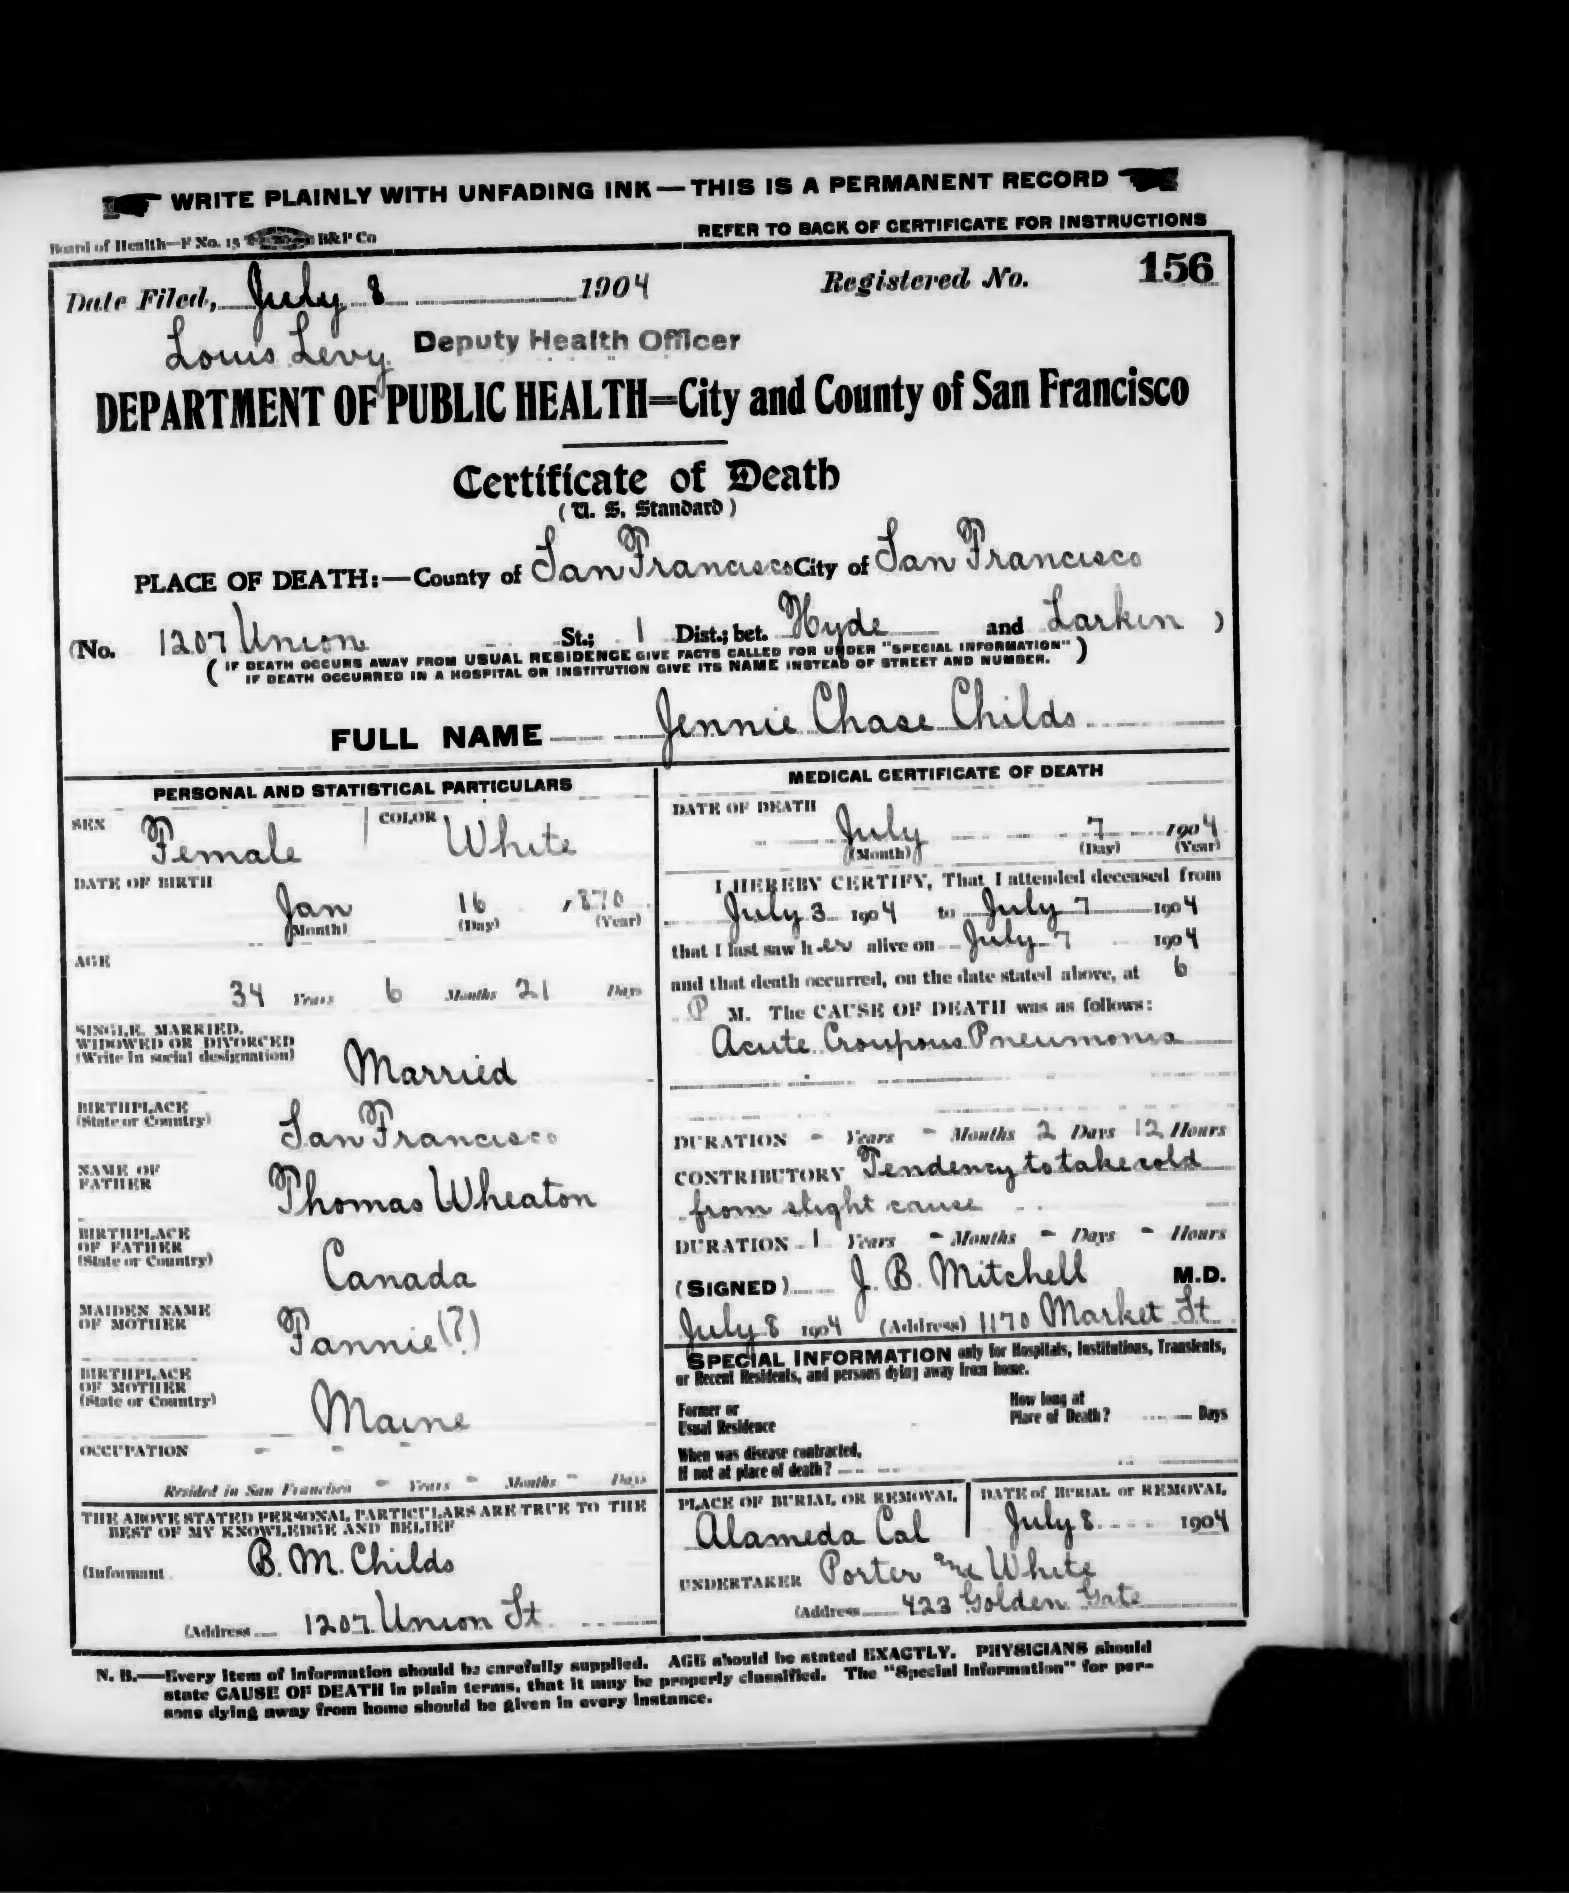 WRITE PLAINLY WITH UNFADING INK — THIS IS A PERMANENT RECORD
Board of Health—F No. 15 B&P Co
REFER TO BACK OF CERTIFICATE FOR INSTRUCTIONS
Date Filed, July 8 1904 Registered No. 156
Louis Levy Deputy Health Officer
DEPARTMENT OF PUBLIC HEALTH=City and County of San Francisco
Certificate of Death
(U. S. Standard)
PLACE OF DEATH:—County of San Francisco City of San Francisco
(No. 1207 Union St.; 1 Dist.; bet. Hyde and Larkin )
( IF DEATH OCCURS AWAY FROM USUAL RESIDENCE GIVE FACTS CALLED FOR UNDER "SPECIAL INFORMATION" )
IF DEATH OCCURRED IN A HOSPITAL OR INSTITUTION GIVE ITS NAME INSTEAD OF STREET AND NUMBER.
FULL NAME Jennie Chase Childs
PERSONAL AND STATISTICAL PARTICULARS
SEX Female COLOR White
DATE OF BIRTH
Jan 16 1870
(Month) (Day) (Year)
AGE
34 Years 6 Months 21 Days
SINGLE, MARRIED,
WIDOWED OR DIVORCED
(Write in social designation)
Married
BIRTHPLACE
(State or Country)
San Francisco
NAME OF
FATHER
Thomas Wheaton
BIRTHPLACE
OF FATHER
(State or Country)
Canada
MAIDEN NAME
OF MOTHER
Fannie (?)
BIRTHPLACE
OF MOTHER
(State or Country)
Maine
OCCUPATION - - -
Resided in San Francisco - Years - Months - Days
THE ABOVE STATED PERSONAL PARTICULARS ARE TRUE TO THE
BEST OF MY KNOWLEDGE AND BELIEF
(Informant B. M. Childs
(Address 1207 Union St
MEDICAL CERTIFICATE OF DEATH
DATE OF DEATH
July 7 1904
(Month) (Day) (Year)
I HEREBY CERTIFY, That I attended deceased from
July 3 1904 to July 7 1904
that I last saw her alive on July 7 1904
and that death occurred, on the date stated above, at 6
P M. The CAUSE OF DEATH was as follows:
Acute Croupous Pneumonia
DURATION - Years - Months 2 Days 12 Hours
CONTRIBUTORY Tendency to take cold
from slight cause
DURATION 1 Years - Months - Days - Hours
(SIGNED) J. B. Mitchell M.D.
July 8 1904 (Address) 1170 Market St
SPECIAL INFORMATION only for Hospitals, Institutions, Transients,
or Recent Residents, and persons dying away from home.
Former or
Usual Residence
How long at
Place of Death? Days
When was disease contracted,
If not at place of death?
PLACE OF BURIAL OR REMOVAL
Alameda Cal
DATE of BURIAL or REMOVAL
July 8 1904
UNDERTAKER Porter and White
(Address 423 Golden Gate
N. B.—Every item of information should be carefully supplied. AGE should be stated EXACTLY. PHYSICIANS should
state CAUSE OF DEATH in plain terms, that it may be properly classified. The "Special Information" for per-
sons dying away from home should be given in every instance.